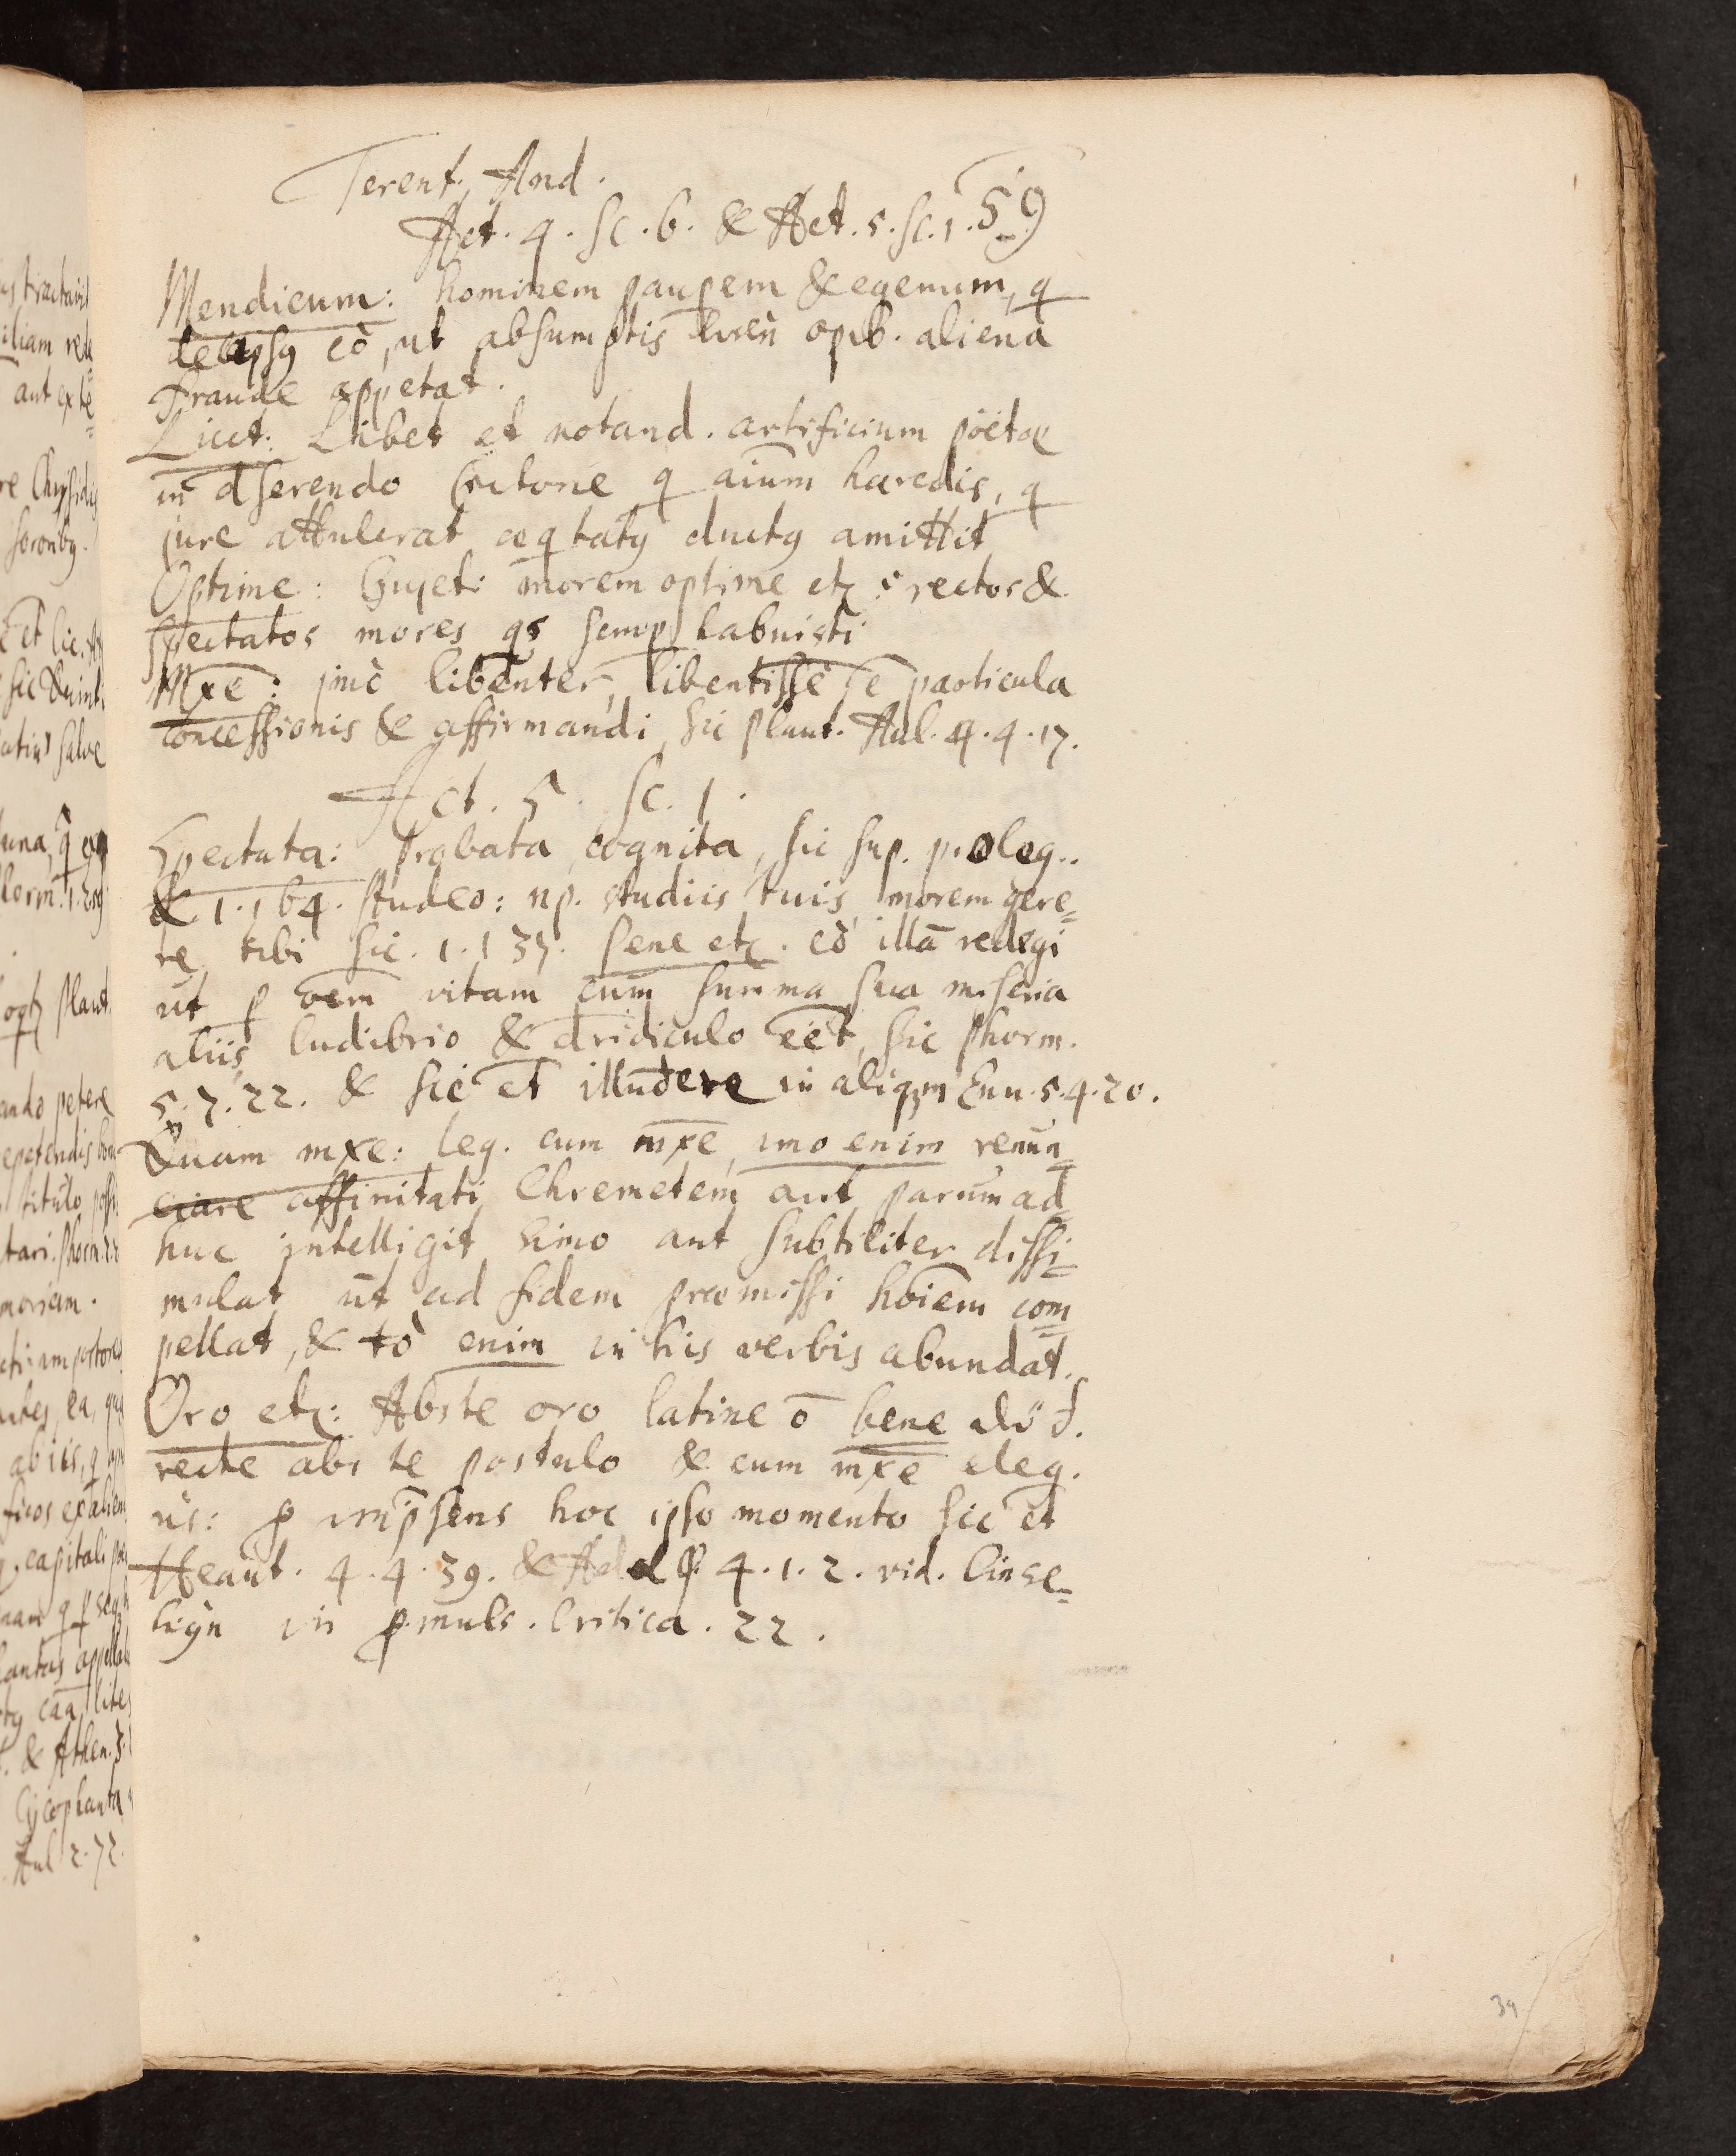 Terent. And.
Act. 4. sc. 6. & Act. 5. sc. 1. 59
Mendicum: hominem paupem & egenum, q
delapsq eò, ut absumptis opib. aliena
fraude appetat.
Licet: Libet et notand. artificium poëtae
in dserendo Critone q aium haredis, q
jure attulerat aeqtatq ductq amittit
Optime: Gujet: morem optime etc. rectos &
spectatos mores qs semp habuisti
Mxe: imò libenter, libentisse particula
concessionis & affirmandi, sic Plaut. Aul. 4. 4. 17.
Act. 5. sc. 1.
Spectata: probata, cognita, sic sup. prolog..
& 1. 1 64. studeo: np. studiis tuis morem gere=
re tibi sic. 1. 1 37. pene etc. eò illā redegi
ut p oem vitam cum summa sua miseria
aliis ludibrio & dridiculo eet, sic Phorm.
5. 7. 22. & sic et illudere in aliqm Eun. 5. 4. 20.
Quam mxe: leg. cum mxe, imo enim renun=
ciare affinitati Chremetem aut parum ad=
huc intelligit Simo aut subtiliter dissi=
mulat ut ad fidem promissi hoiem com=
pellat, & tò enim in his verbis abundat.
Oro etc: Abs te oro latine ō bene
recte abs te postulo & cum mxe eleg.
hoc ipso momento sic et
Heaut. 4. 4. 39. & Adelph. 4. 1. 2. vid.
in pmuls. Critica. 22.
39